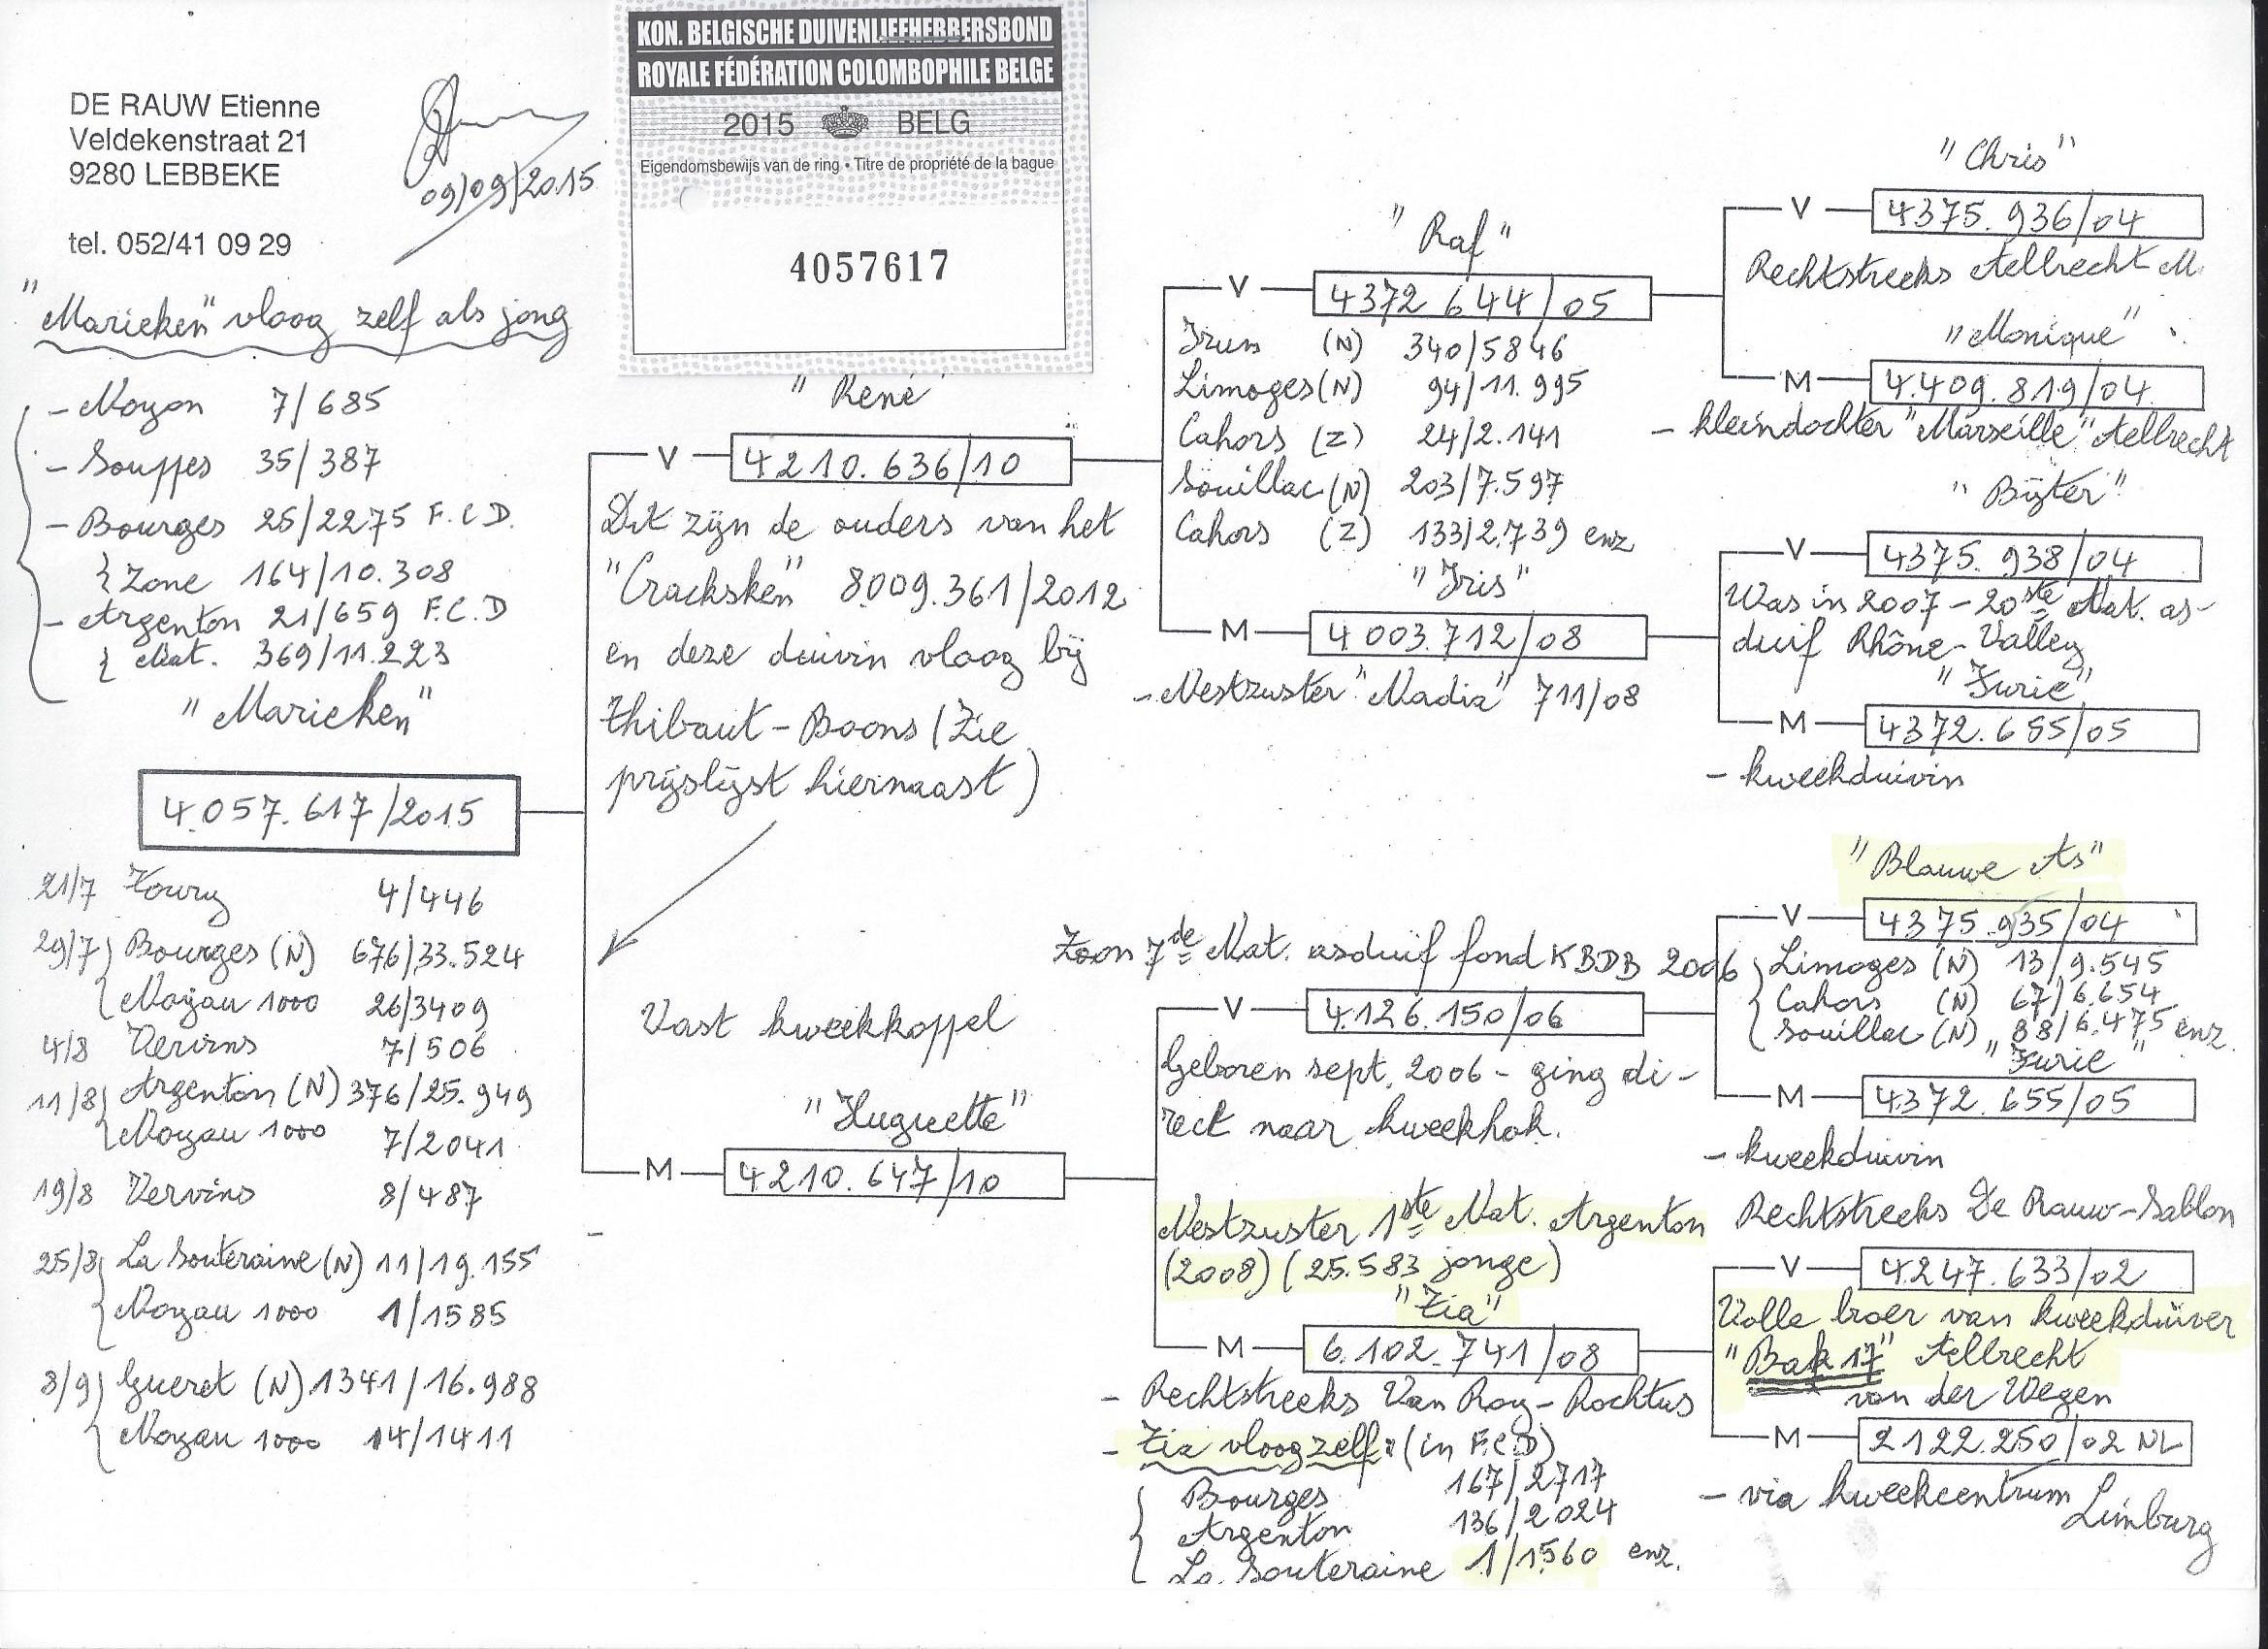 KON. BELGISCHE DUIVENLIEFHEBBERSBOND
ROYALE FÉDÉRATION COLOMBOPHILE BELGE
2015 BELG
Eigendomsbewijs van de ring • Titre de propriété de la bague
4057617
DE RAUW Etienne
Veldekenstraat 21
9280 LEBBEKE
tel. 052/41 09 29
09/09/2015
"Marieken" vloog zelf als jong
- Noyon 7/685
- Souppes 35/387
- Bourges 25/2275 F.C.D.
{ Zone 164/10.308
- Argenton 21/659 F.C.D
{ Nat. 369/11.223
"Marieken"
4.057.617/2015
21/7 Toury 4/446
29/7 Bourges (N) 676/33.524
Noyau 1000 26/3409
4/8 Vervins 7/506
11/8 Argenton (N) 376/25.949
Noyau 1000 7/2041
19/8 Vervins 8/487
25/8 La Souteraine (N) 11/19.155
Noyau 1000 1/1585
8/9 Gueret (N) 1341/16.988
Noyau 1000 14/1411
"René"
V 4210.636/10
Dit zijn de ouders van het
"Cracksken" 8.009.361/2012
en deze duivin vloog bij
Thibaut - Boons (Zie
prijslijst hiernaast)
Vast kweekkoppel
"Huguette"
M 4210.647/10
"Raf"
V 4372.644/05
Irun (N) 340/5846
Limoges (N) 94/11.995
Cahors (Z) 24/2.141
Souillac (N) 203/7.597
Cahors (Z) 133/2.739 enz
"Iris"
M 4.003.712/08
- Nestzuster "Nadia" 711/08
Zoon 7de Nat. asduif fond KBDB 2006
V 4.126.150/06
Geboren sept. 2006 - ging di-
rect naar kweekhok.
Nestzuster 1ste Nat. Argenton
(2008) (25.583 jonge)
"Zia"
M 6.102.741/08
- Rechtstreeks Van Roy - Rochtus
- Zia vloog zelf: (in F.C.D)
Bourges 167/2717
Argenton 136/2024
La Souteraine 1/1560 enz.
"Chris"
V 4375.936/04
Rechtstreeks Aelbrecht M.
"Monique"
M 4.409.819/04
- kleindochter "Marseille" Aelbrecht
"Bijter"
V 4375.938/04
Was in 2007 - 20ste Nat. as-
duif Rhône-Valley
"Furie"
M 4372.655/05
- kweekduivin
"Blauwe As"
V 4375.935/04
Limoges (N) 13/9.545
Cahors (N) 67/6.654
Souillac (N) 88/6.475 enz.
"Furie"
M 4372.655/05
- kweekduivin
Rechtstreeks De Rauw-Sablon
V 4247.633/02
Volle broer van kweekduiver
"Bak 17" Aelbrecht
van der Wegen
M 2122.250/02 NL
- via kweekcentrum
Limburg